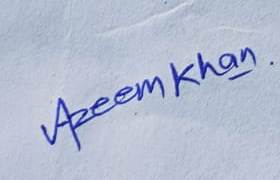 Azeem Khan.